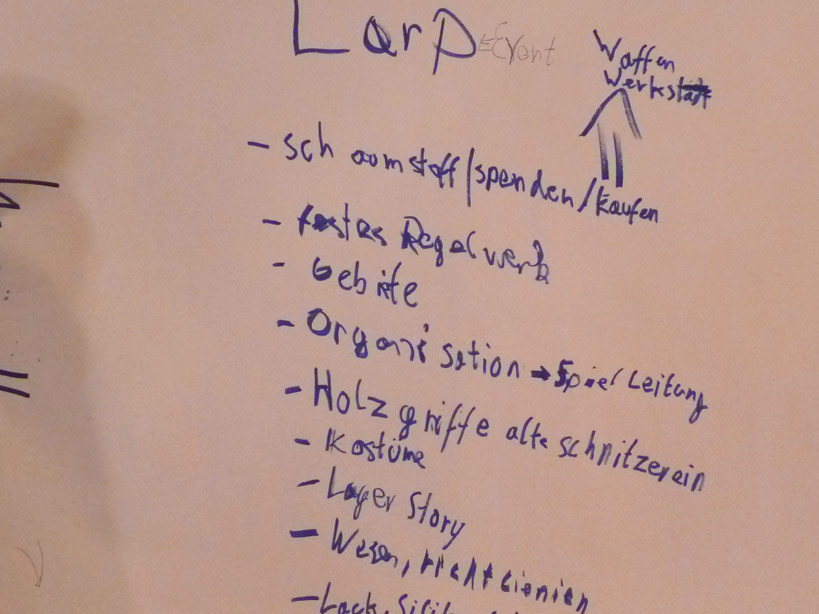 Larp Event
Waffen
Werkstatt
- schaumstoff/spenden/kaufen
- festes Regelwerk
- Gebite
- Organisation → Spiel Leitung
- Holzgriffe alte schnitzerein
- Kostüme
- Lager Story
- Wesen,
- Lack,